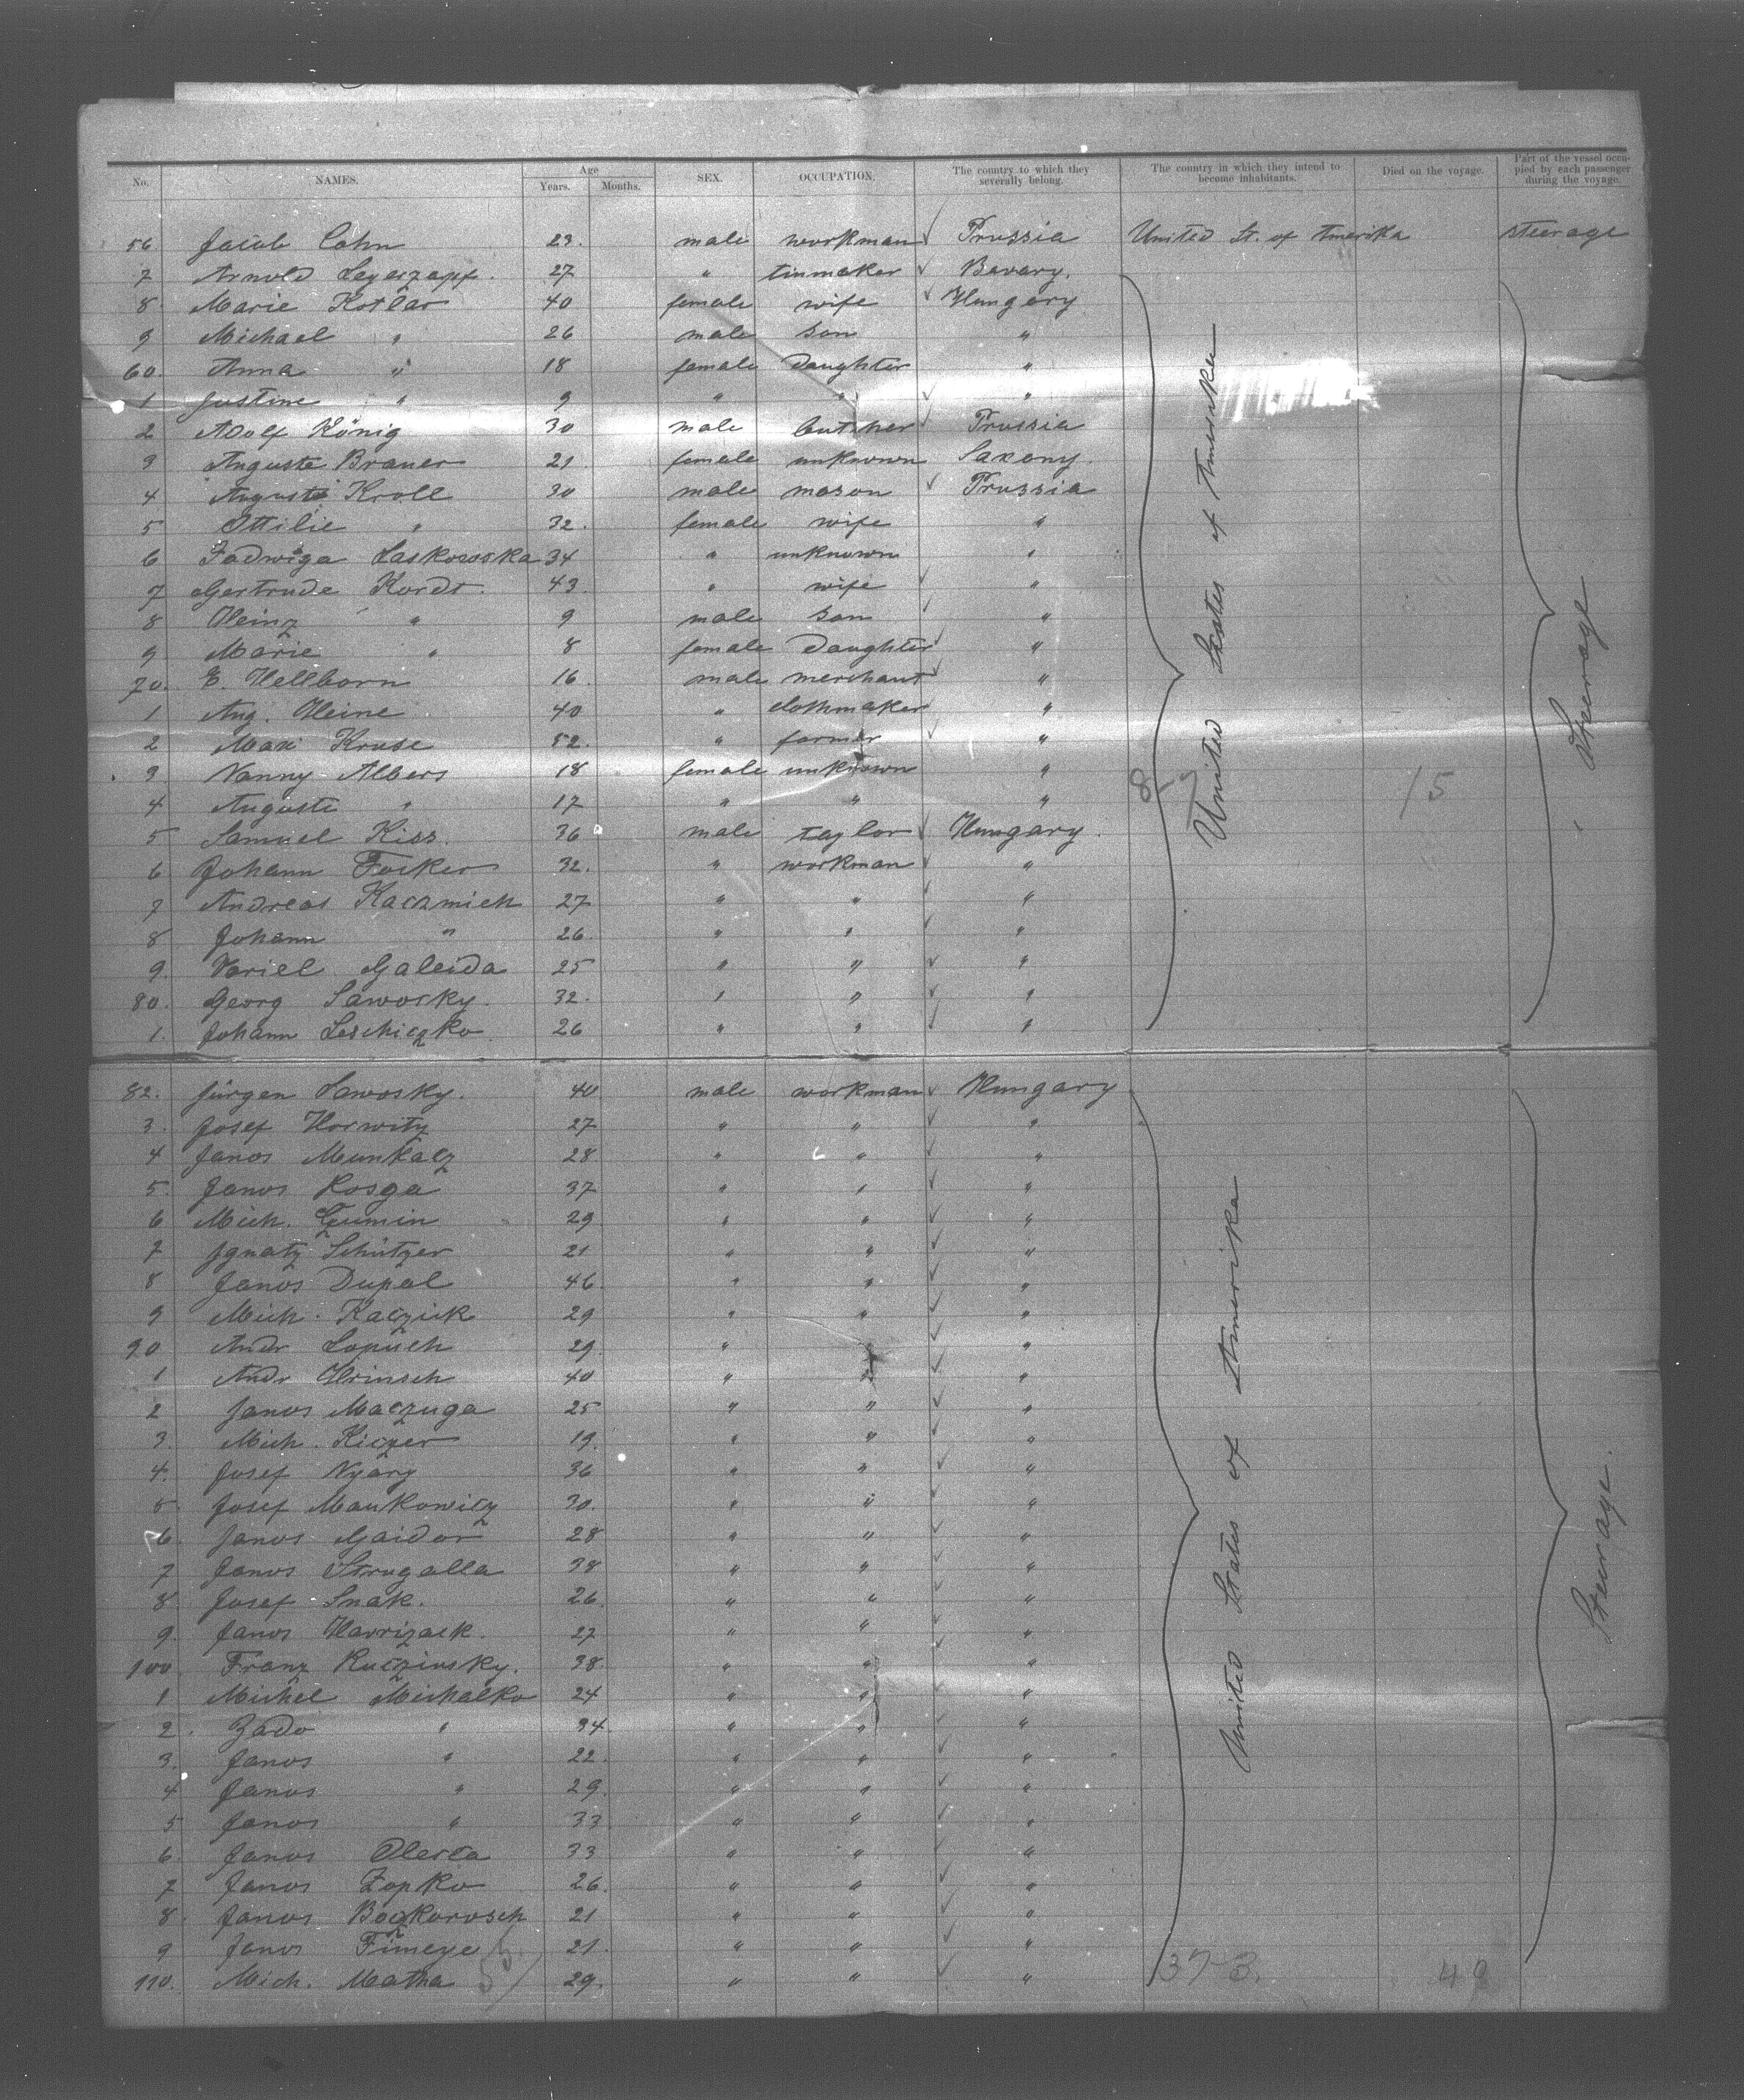 No. NAMES. Age Years. Months. SEX. OCCUPATION. The country to which they severally belong. The country in which they intend to become inhabitants. Died on the voyage. Part of the vessel occupied by each passenger during the voyage.
56 Jacob Cohn 23. male workman Prussia United St. of Amerika steerage
7 Arnold 27 " tinmaker Bavary.
8 Marie Kotlar 40 female wife Hungary
9 Michael " 26 male son "
60. Anna " 18 female Daughter "
1 Justine " 9 " " "
2 Adolf König 30 male butcher Prussia
3 Auguste Brauer 21 female unknown Saxony.
4 August Kroll 30 male mason Prussia
5 Ottilie " 32. female wife "
6 Jadwiga Laskowska 34 " unknown "
7 Gertrude Kordt. 43. " wife "
8 Heinz " 9 male son "
9 Marie " 8 female Daughter "
70. E. Hellborn 16. male merchant "
1 Aug. Heine 40 " clothmaker "
2 Max Kruse 52. " farmer "
3 Nanny Albers 18 female unknown "
4 Auguste " 17 " " "
5 Samuel Kiss. 36 male taylor Hungary.
6 Johann Focker 32. " workman "
7 Andreas Kaczmich 27 " " "
8 Johann " 26. " " "
9. Galeida 25 " " "
80. Georg Sawosky. 32. " " "
1. Johann Leschiczko 26 " " "
United States of Amerika
Steerage
15
82. Jürgen Sawosky. 40 male workman Hungary
3. Josef Horwitz 27 " " "
4 Janos Munkacz 28 " " "
5. Janos Rosga 37 " " "
6 Mich. 29. " " "
7 Ignatz Schützer 21 " " "
8 Janos Dupal 46. " " "
9 Mich. Kaczick 29 " " "
90 Andr Lopuch 29. " " "
1 Andr Hrinsch 40 " " "
2 Janos Maczuga 25 " " "
3. Mich. Kiczer 19. " " "
4. Josef Nyary 36 " " "
5 Josef Mankowicz 30. " " "
6. Janos Gaidor 28 " " "
7 Janos Strugalla 38 " " "
8 Josef Snak. 26. " " "
9. Janos Harrizack. 27 " " "
100. Franz Ruczinsky. 38. " " "
1 Michel Michalko 24 " " "
2. Zado " 34. " " "
3. Janos " 22. " " "
4 Janos " 29. " " "
5 Janos " 33. " " "
6. Janos 33 " " "
7 Janos Zopko 26. " " "
8. Janos Boczkorosch 21 " " "
9 Janos Fimeye 21. " " "
110. Mich. Matha 29. " " "
United States of Amerika
Steerage.
373.
49